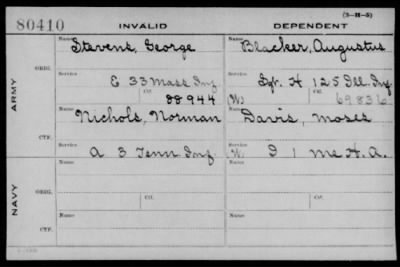 (3-H-5)
80410 INVALID DEPENDENT
Name Stevens, George Name Blacker, Augustus
ORIG. Service E 33 Mass. Inf Service Sgt. H 125 Ill. Inf
Ctf. 88944 (W) Ctf. 69836
ARMY
Name Nichols, Norman Name Davis, Moses
CTF. Service A 3 Tenn Inf. Service (W) I 1 Me H. A.
Name Name
ORIG. Service Service
Ctf. Ctf.
NAVY
Name Name
CTF. Service Service